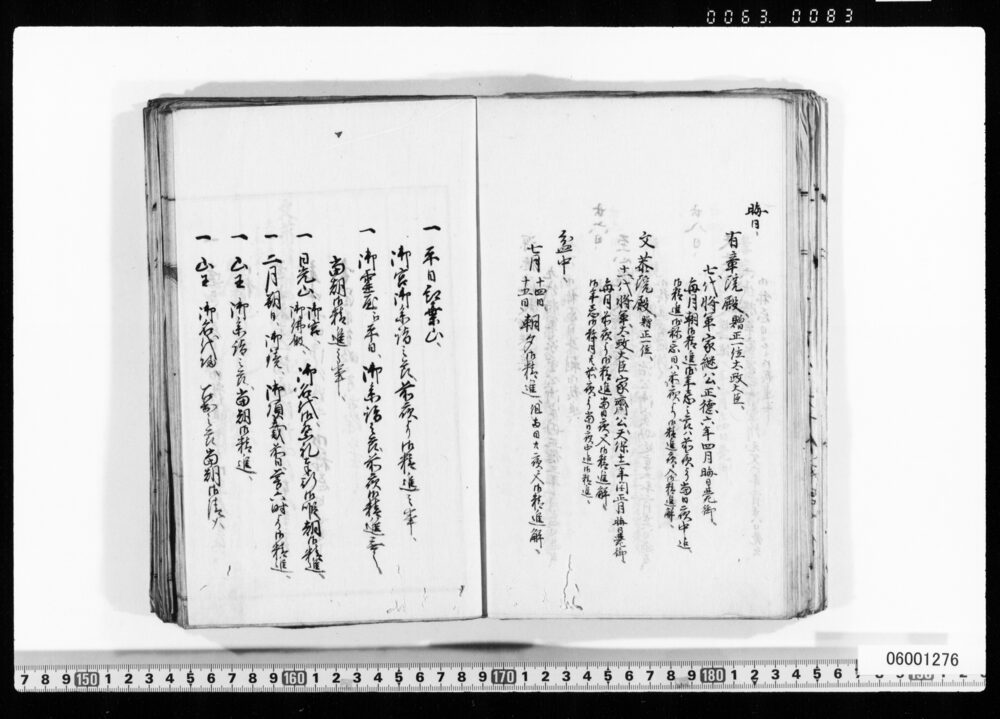 0063. 0083
晦日、
有章院殿 贈正一位太政大臣、
七代将軍家継公正徳六年四月晦日薨御、
毎月朝御精進御年忌之節ハ前夜ゟ当日夜中迄
御精進御称忌日ハ前夜ゟ御精進夜ニ入御精進解、
文恭院殿 贈正一位、
十一代将軍太政大臣家齊公天保十二年閏正月晦日薨御
毎月前夜ゟ御精進当日夜ニ入御精進解、
御年忌御祥月共前夜ゟ当日夜中迄御精進、
盆中
七月 十四日 十五日 朝夕御精進、但当日夜ニ入御精進解、
一 平日紅葉山、
御宮御参詣之節前夜ゟ御精進之事、
一 御霊屋江平日、御参詣之節前夜御精進無之
当朝御精進之事、
一 日光山、御宮、御佛殿、御名代御祭礼奉行御暇朝御精進、
一 二月朔日、御鏡、御頂戴 暮六時ゟ御精進、
一 山王御参詣之節、当朝御精進、
一 山王御名代 之節当朝御清火
7 8 9 150 1 2 3 4 5 6 7 8 9 160 1 2 3 4 5 6 7 8 9 170 1 2 3 4 5 6 7 8 9 180 1 2 3 4 5 6 7 8 9
06001276